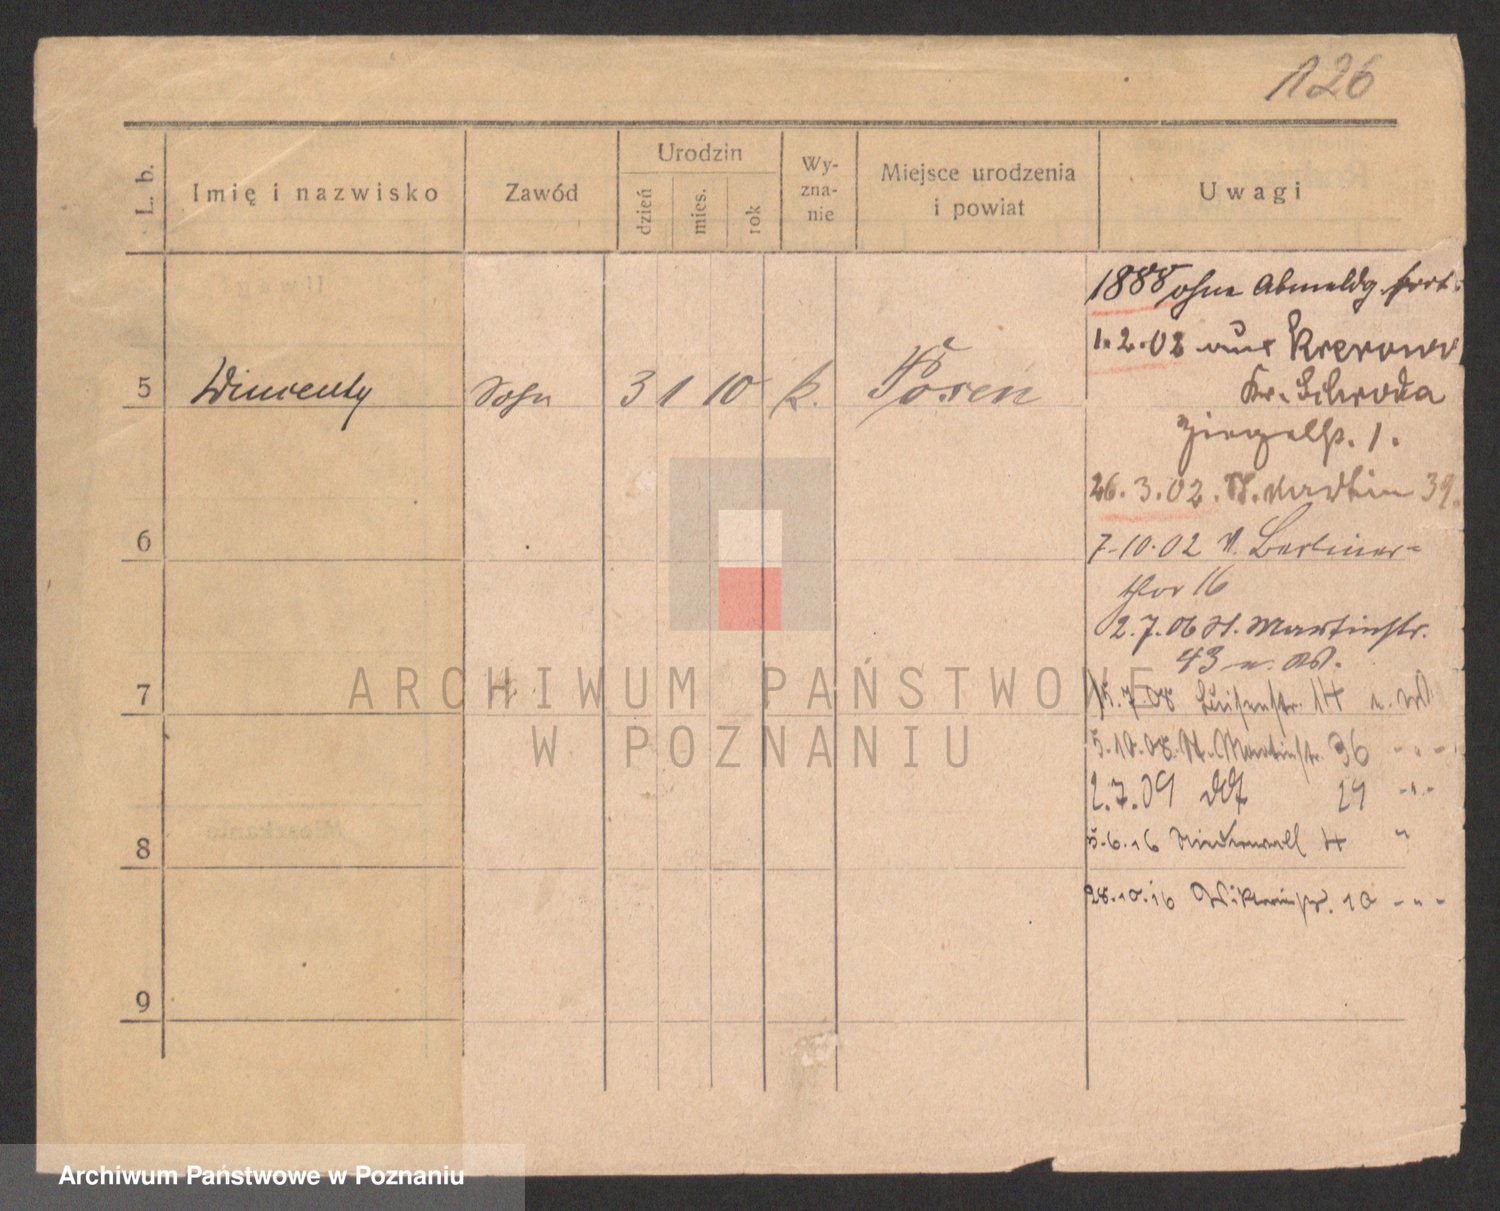 126
L. b.
Imię i nazwisko
Zawód
Urodzin
dzień
mies.
rok
Wy-
zna-
nie
Miejsce urodzenia
i powiat
Uwagi
1888 ohne Abmeldg. fort.
1.2.02 aus Krerowo
Kr. Schroda
Ziegelstr. 1.
5 Wincenty Sohn 3 1 10 k. Posen
26.3.02. St. Martin 39.
6
7.10.02 v. Berliner-
thor 16
2.7.06 St. Martinstr.
43 u. W.
7
15.7.08 Luisenstr. 14 u. W
5.10.08. St. Martinstr. 36 - " -
2.7.09 29 - " -
8
5.6.16 Niederwall 4 "
28.10.16 10 - " -
9
ARCHIWUM PAŃSTWOWE
W POZNANIU
Archiwum Państwowe w Poznaniu